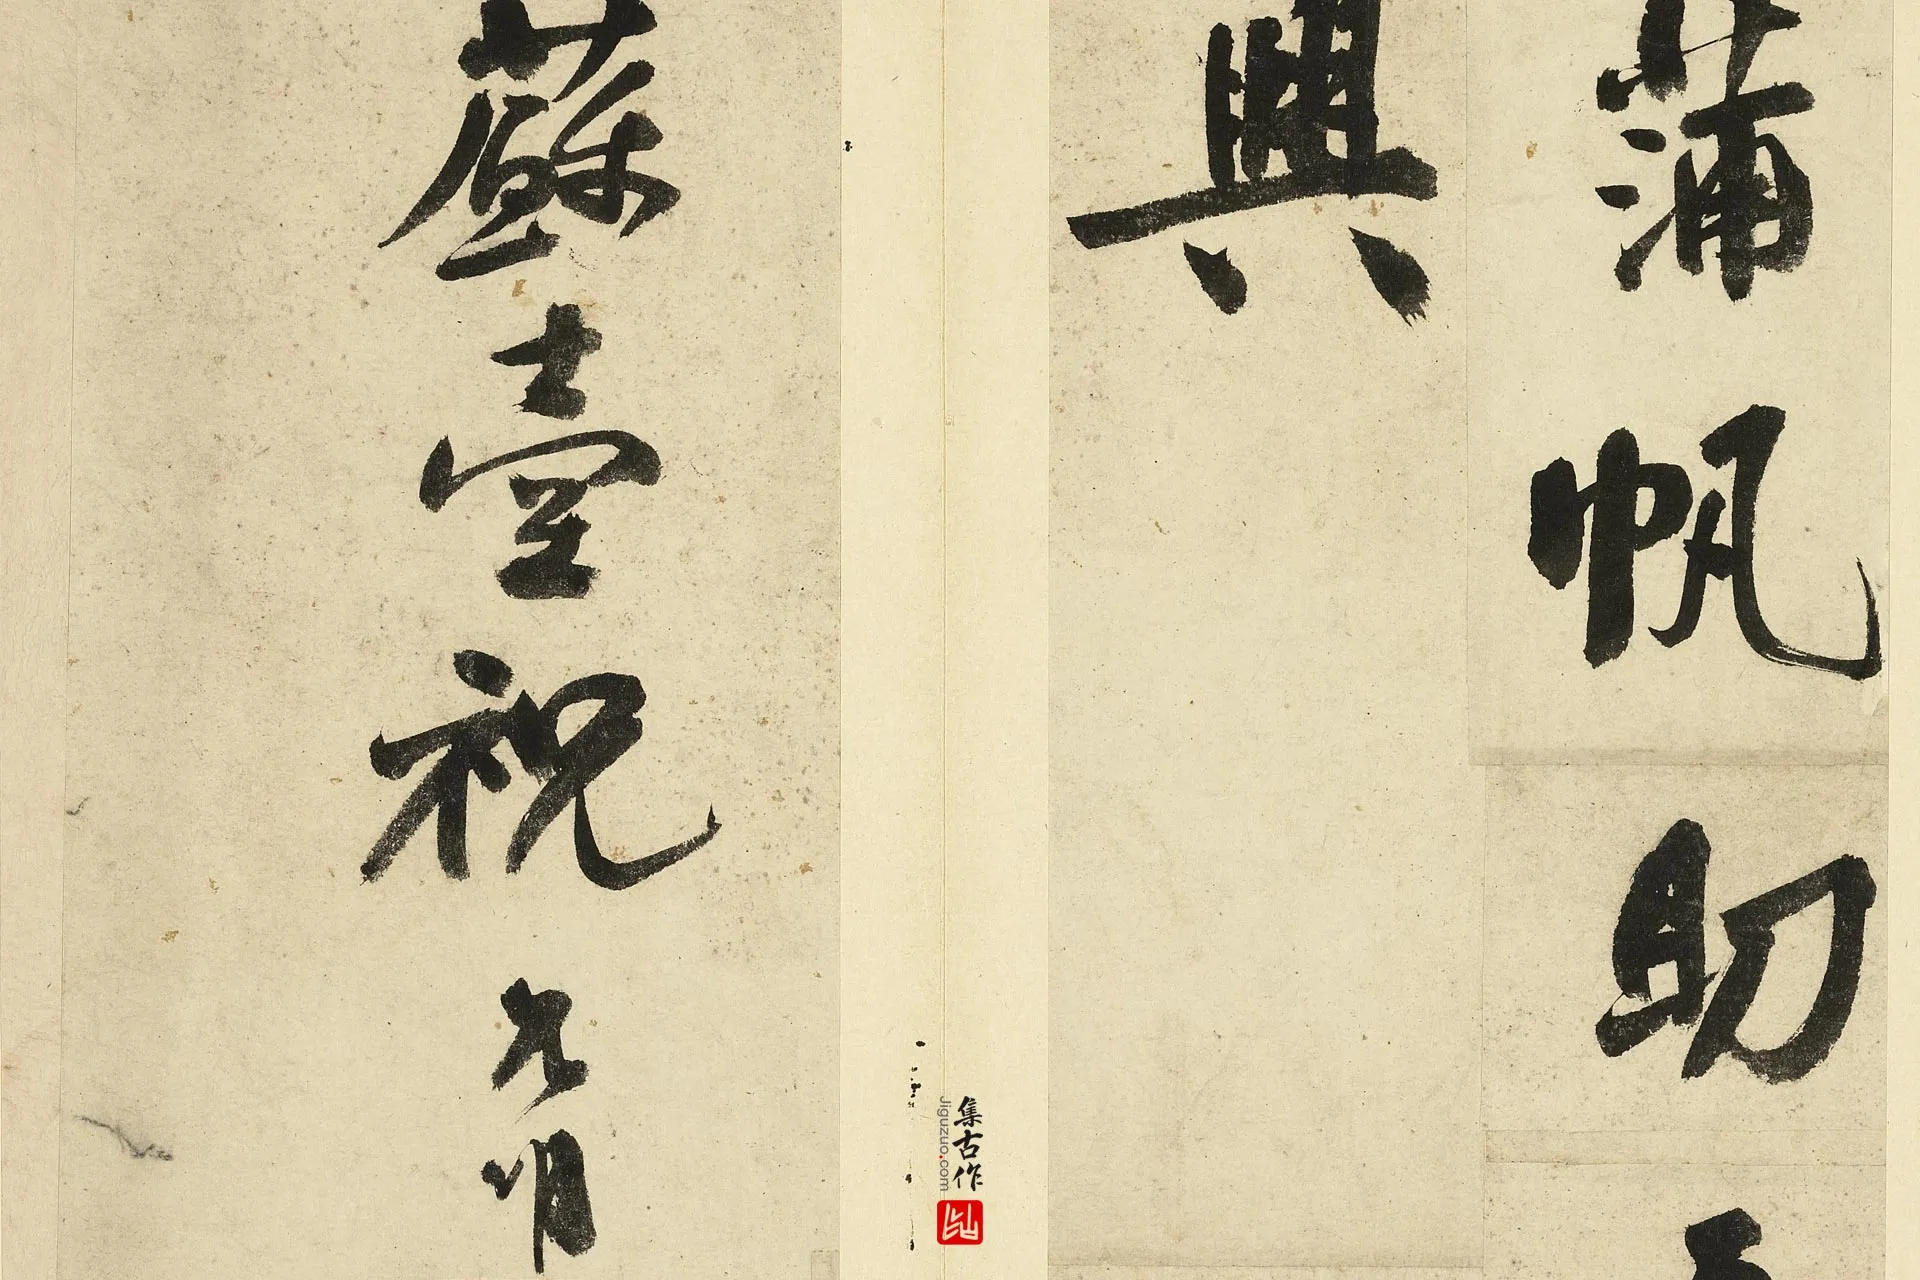 蒲帆助
興
蘇臺祝允明
集古作
Jiguzuo.com